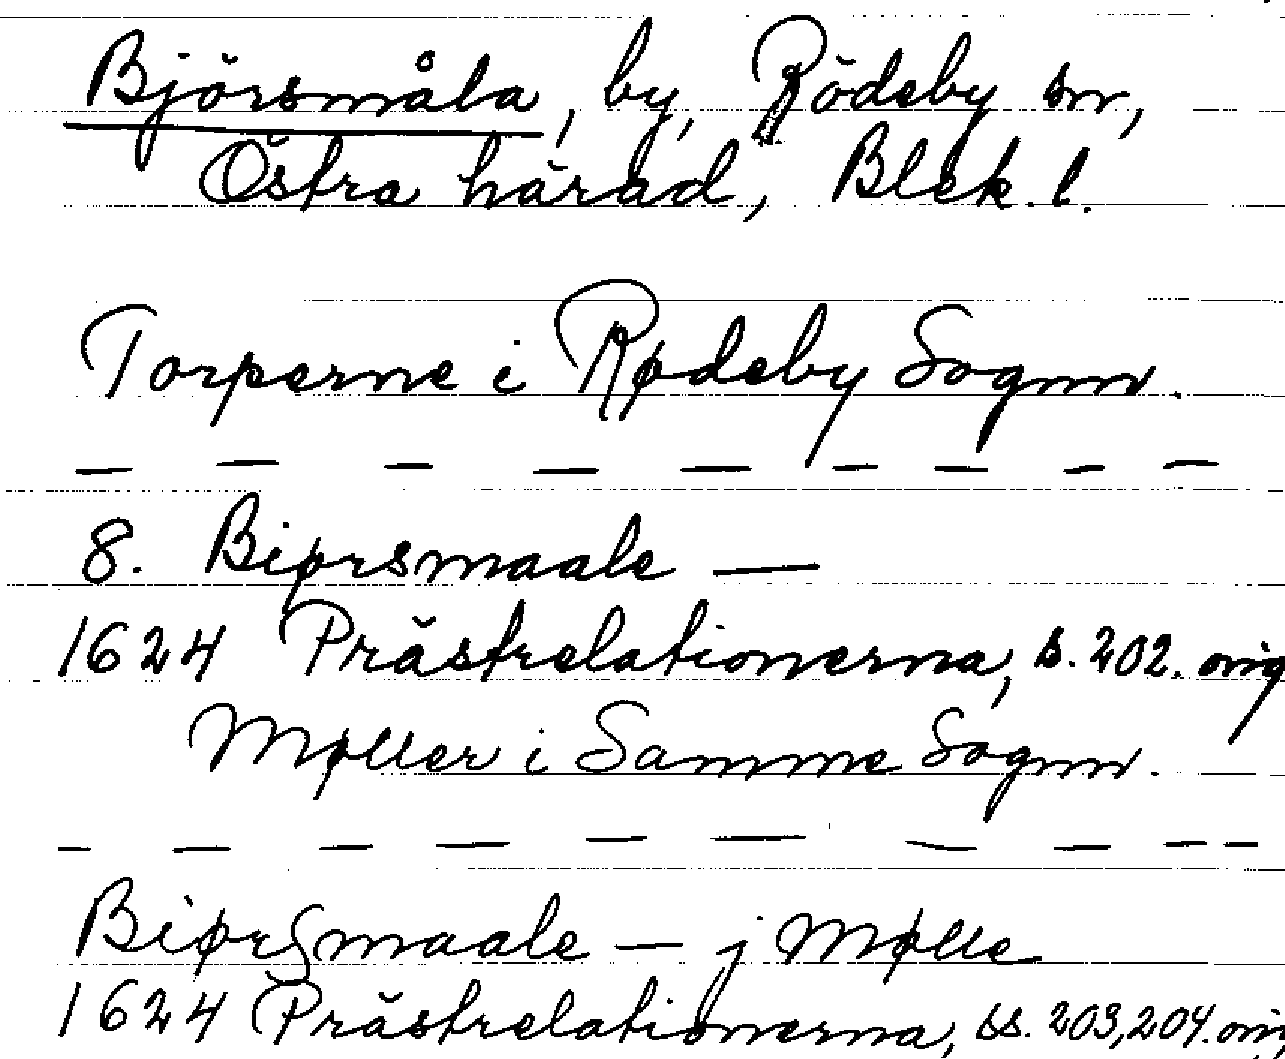 Björsmåla, by, Rödeby sn,
Östra härad, Blek. l.
Torperne i Rødeby Sognn.
— — — — — — — — —
8. Biørsmaale —
1624 Prästrelationerna, s. 202. orig
Møller i Samme Sognn.
— — — — — — — — — —
Biørsmaale — j Mølle
1624 Prästrelationerna, ss. 203, 204. orig